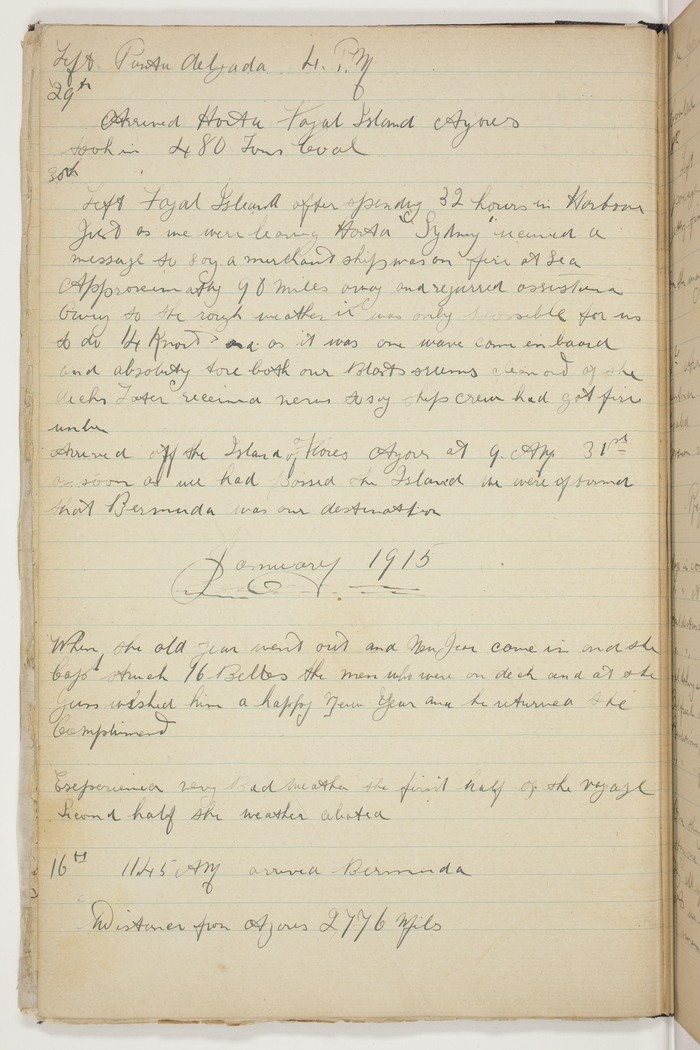 Left Ponta delgada 4. P.M
29th
Arrived Horta Fayal Island Azores
took in 480 Tons Coal
30th
Left Fayal Island after spending 32 hours in Harbour
Just as we were leaving Horta "Sydney" received a
message to say a merchant ship was on fire at Sea
Approximatly 90 miles away and required assistance
Owing to the rough weather it was only possible for us
to do 4 Knots and as it was one wave came inboard
and absolutly tore both our Boats clean off the
decks Later received news to say ships crew had got fire
under
Arrived off the Island of Flores Azores at 9. AM 31st
as soon as we had passed the Island we were informed
that Bermuda was our destination
January 1915
When the old year went out and New Year came in and the
Capt struck 16 Belles the men who were on deck and at the
guns wished him a happy New Year and he returned the
Compliment
Experienced very Bad weather the first half of the voyage
Second half the weather abated
16th 1145 AM arrived Bermuda
Distance from Azores 2776 Miles